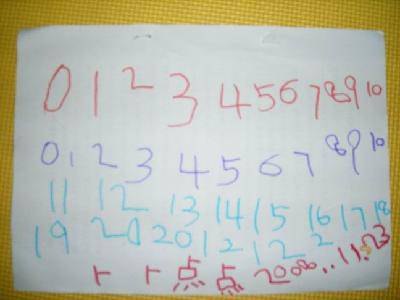 0 1 2 3 4 5 6 7 8 9 10
0 1 2 3 4 5 6 7 8 9 10
11 12 13 14 15 16 17 18
19 20 20 12 12 2
点 点 2008.. 11.23